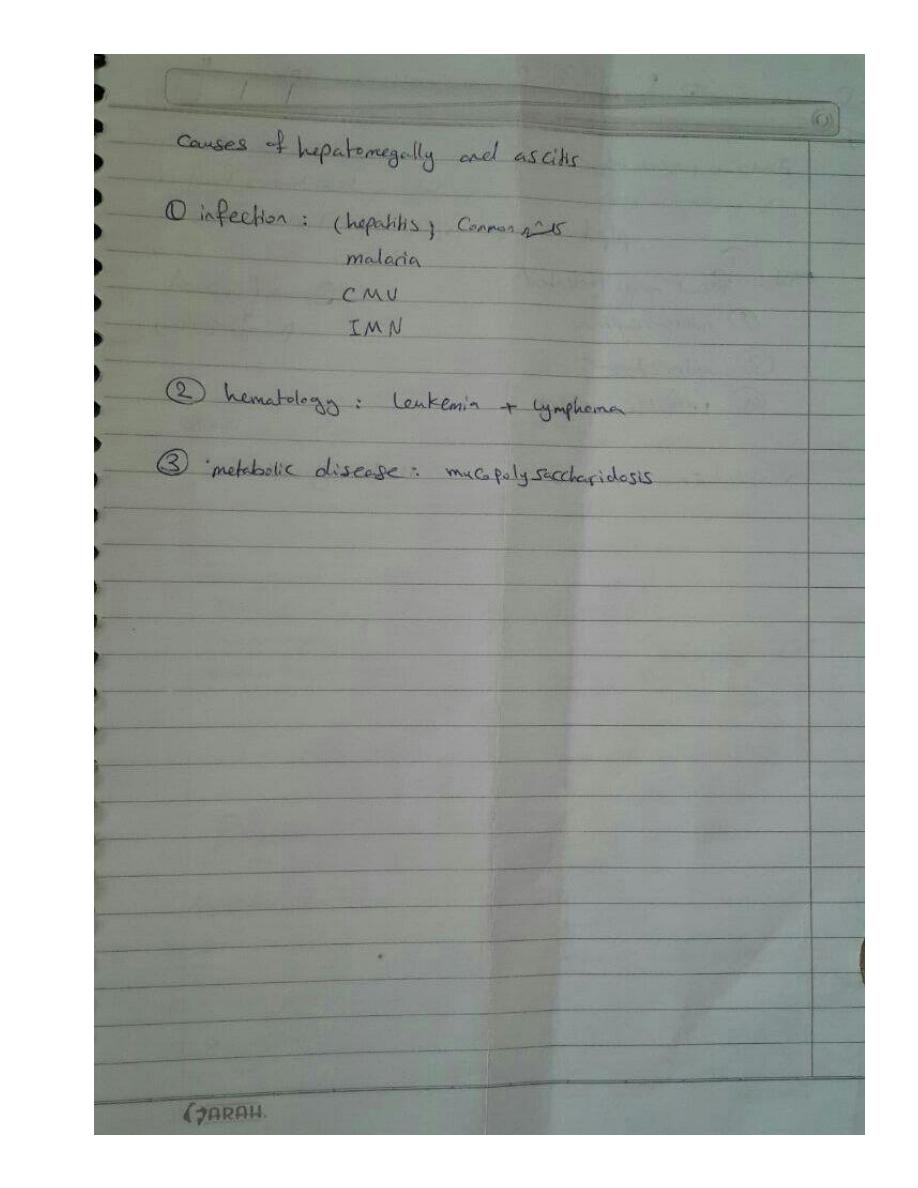 Causes of hepatomegally and ascitis
① infection : (hepatitis; Common
malaria
CMV
IMN
② hematology : leukemia + lymphoma
③ metabolic disease : mucopolysaccharidosis
SARAH.